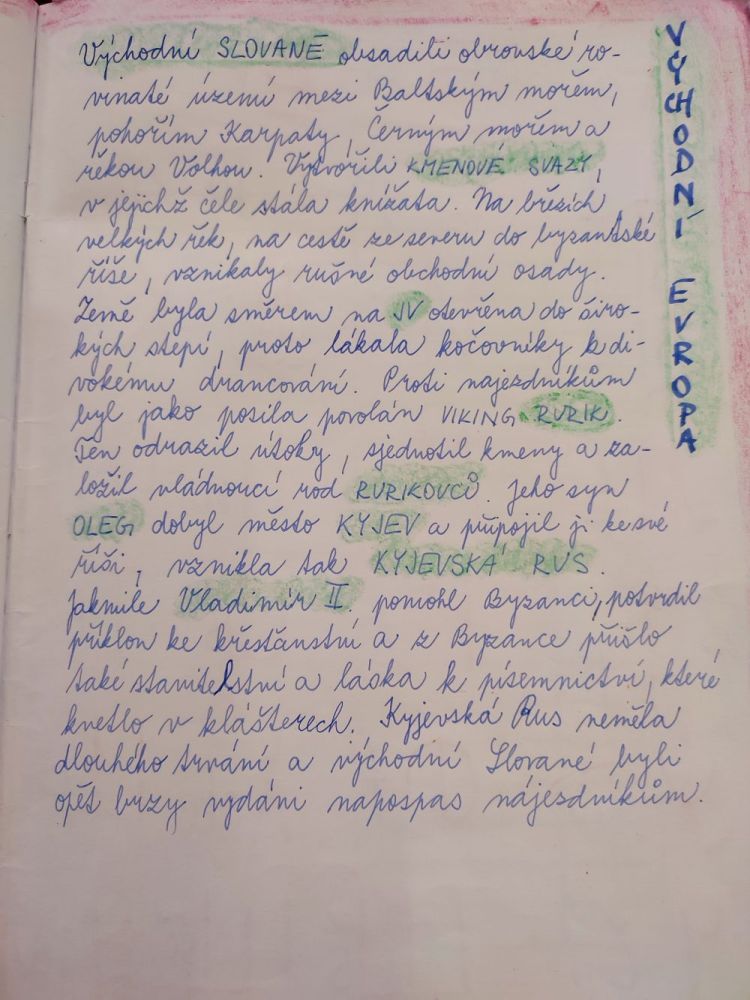 VÝCHODNÍ EVROPA
Východní SLOVANÉ obsadili obrovské ro-
vinaté území mezi Baltským mořem,
pohořím Karpaty, Černým mořem a
řekou Volhou. Vytvořili KMENOVÉ SVAZY,
v jejichž čele stála knížata. Na březích
velkých řek, na cestě ze severu do byzantské
říše, vznikaly rušné obchodní osady.
Země byla směrem na JV otevřena do širo-
kých stepí, proto lákala kočovníky k di-
vokému drancování. Proti najezdníkům
byl jako posila povolán VIKING RURIK.
Ten odrazil útoky, sjednotil kmeny a za-
ložil vládnoucí rod RURIKOVCŮ. Jeho syn
OLEG dobyl město KYJEV a připojil ji ke své
říši, vznikla tak KYJEVSKÁ RUS.
Jakmile Vladimír II. pomohl Byzanci, potvrdil
příklon ke křesťanství a z Byzance přišlo
také stavitelství a láska k písemnictví, které
kvetlo v klášterech. Kyjevská Rus neměla
dlouhého trvání a východní Slované byli
opět brzy vydáni napospas nájezdníkům.